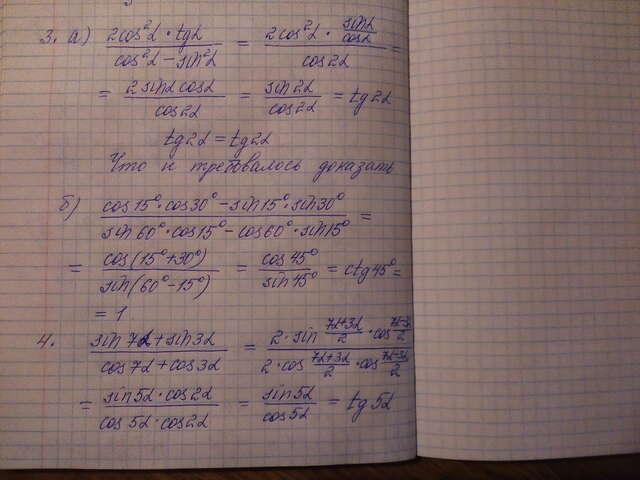 3. а) (2cos²α · tgα)/(cos²α − sin²α) = (2cos²α · sinα/cosα)/(cos2α) =
= (2 sinα cosα)/(cos2α) = (sin2α)/(cos2α) = tg2α
tg2α = tg2α
Что и требовалось доказать
б) (cos15° · cos30° − sin15° · sin30°)/(sin60° · cos15° − cos60° · sin15°) =
= (cos(15°+30°))/(sin(60°−15°)) = (cos45°)/(sin45°) = ctg45° =
= 1
4. (sin7α + sin3α)/(cos7α + cos3α) = (2 · sin (7α+3α)/2 · cos (7α−3α)/2)/(2 · cos (7α+3α)/2 · cos (7α−3α)/2)
= (sin5α · cos2α)/(cos5α · cos2α) = (sin5α)/(cos5α) = tg5α